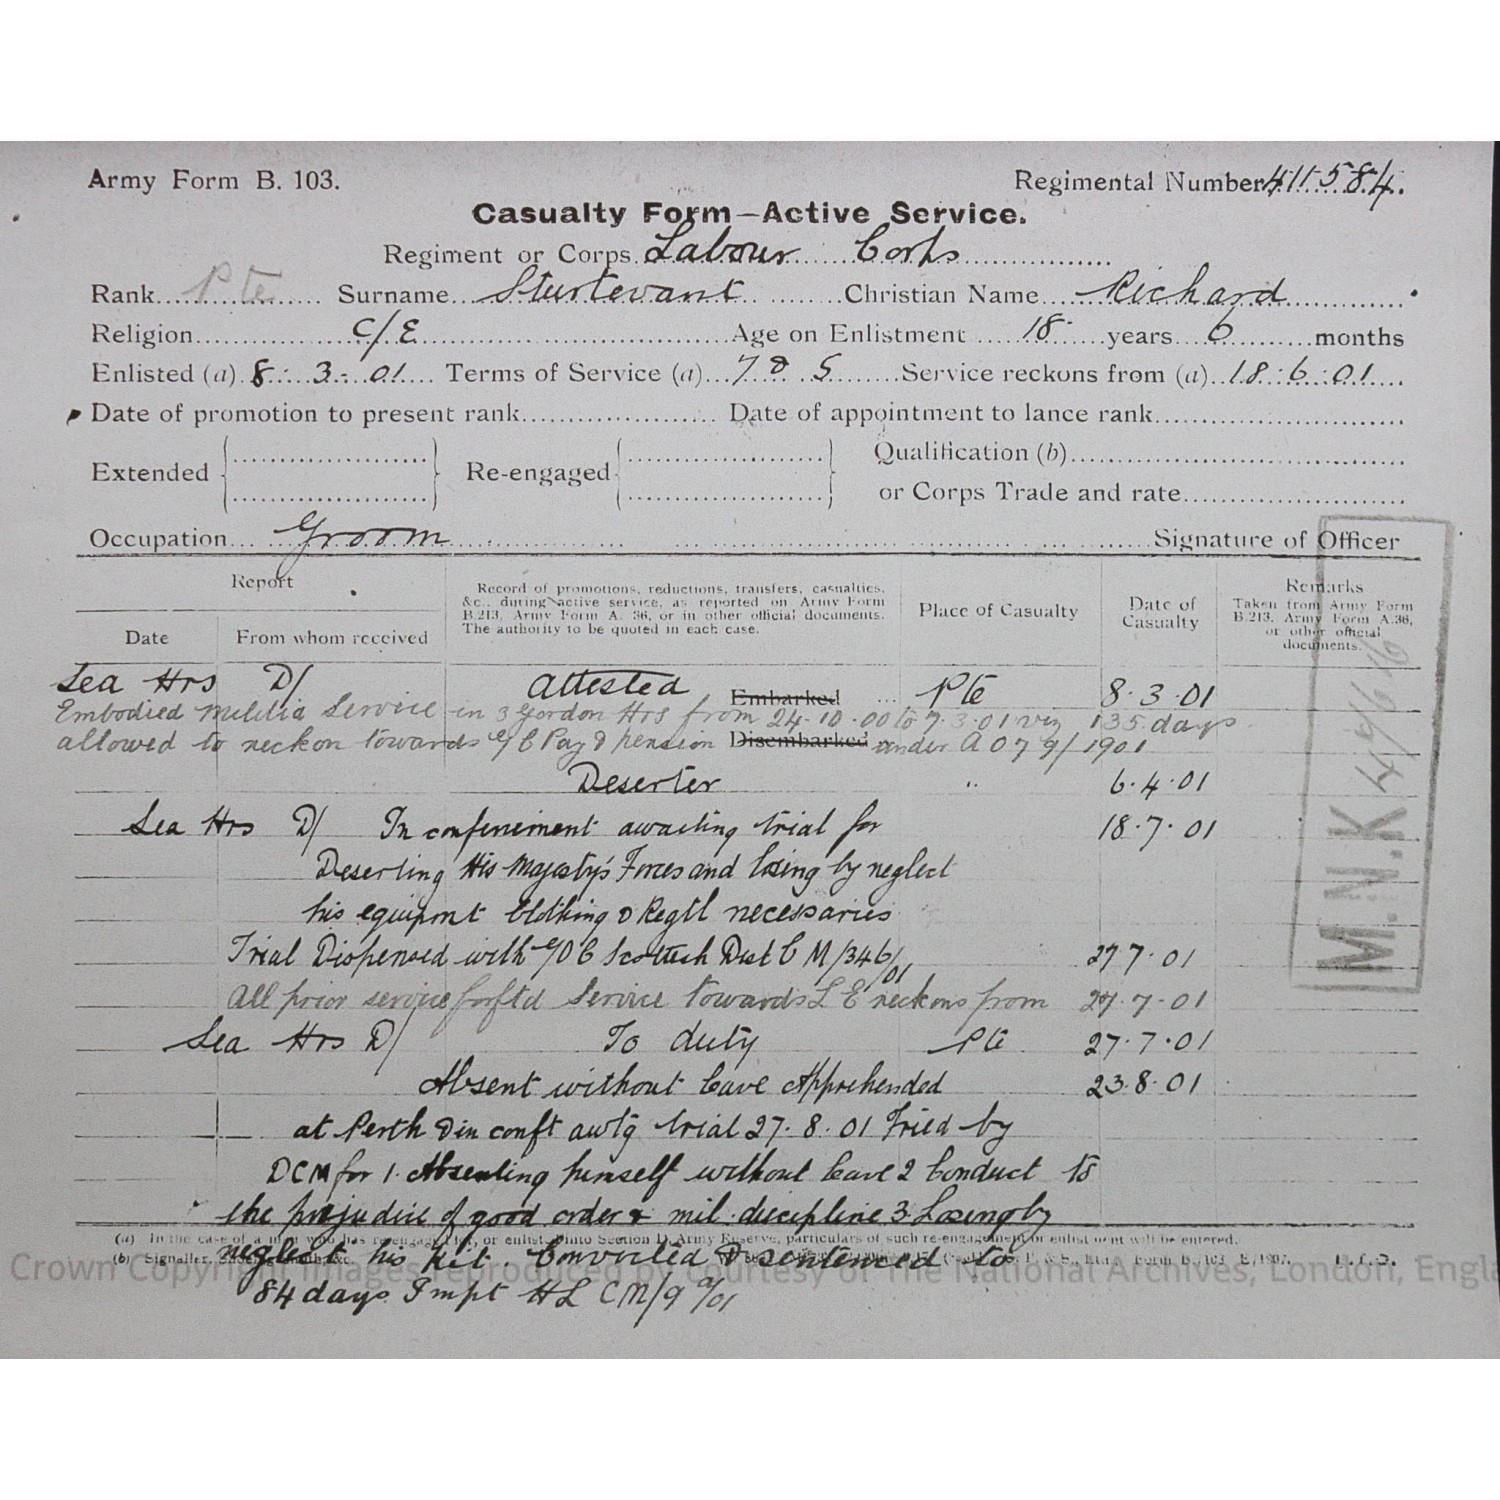 Army Form B. 103.
Regimental Number 411584.
Casualty Form—Active Service.
Regiment or Corps Labour Corps
Rank Pte Surname Sturtevant Christian Name Richard
Religion C/E Age on Enlistment 18 years 6 months
Enlisted (a) 8. 3. 01 Terms of Service (a) 7 & 5 Service reckons from (a) 18.6.01
Date of promotion to present rank Date of appointment to lance rank
Extended Re-engaged Qualification (b)
or Corps Trade and rate
Occupation Groom Signature of Officer
Report
Date
From whom received
Record of promotions, reductions, transfers, casualties,
&c., during active service, as reported on Army Form
B.213, Army Form A. 36, or in other official documents.
The authority to be quoted in each case.
Place of Casualty
Date of
Casualty
Remarks
Taken from Army Form
B.213, Army Form A.36,
or other official
documents.
Sea Hrs D/ Attested Embarked Pte 8.3.01
Embodied Militia Service in 3 Gordon Hrs from 24.10.00 to 7.3.01 viz 135 days
allowed to reckon towards G C Pay & pension Disembarked under A O 79/1901
Deserter " 6.4.01
Sea Hrs D/ In confinement awaiting trial for 18.7.01
Deserting His Majesty's Forces and losing by neglect
his equipmt Clothing & Regtl necessaries
Trial Dispensed with G/O C Scottish Dist C M/346/01 27 7.01
All prior service forftd Service towards L E reckons from 27.7.01
Sea Hrs D/ To duty Pte 27.7.01
Absent without leave Apprehended 23.8.01
at Perth & in conft awtg trial 27.8.01 Tried by
DCM for 1. Absenting himself without leave 2 Conduct to
the prejudice of good order & mil. discipline 3 Losing by
neglect his kit. Convicted & sentenced to
84 days Impt H L C M/9 9/01
M.N.K
(a) In the case of a man who has re-engaged for, or enlisted into Section D, Army Reserve, particulars of such re-engagement or enlistment will be entered.
(b) Signaller,
Crown Copyright Images reproduced by Courtesy of The National Archives, London, Engla